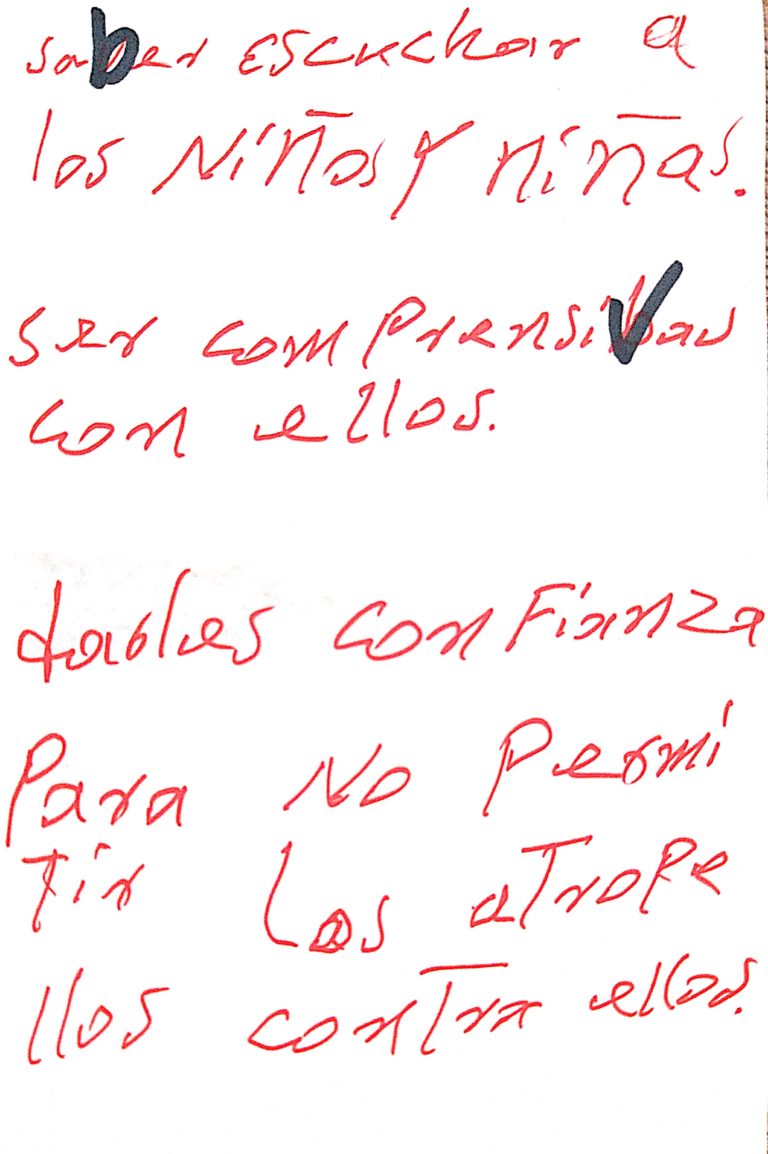 saber escuchar a
los Niños y niñas.
ser comprensivas
con ellos.
darles confianza
Para No Permi
tir Los atrope
llos contra ellos.